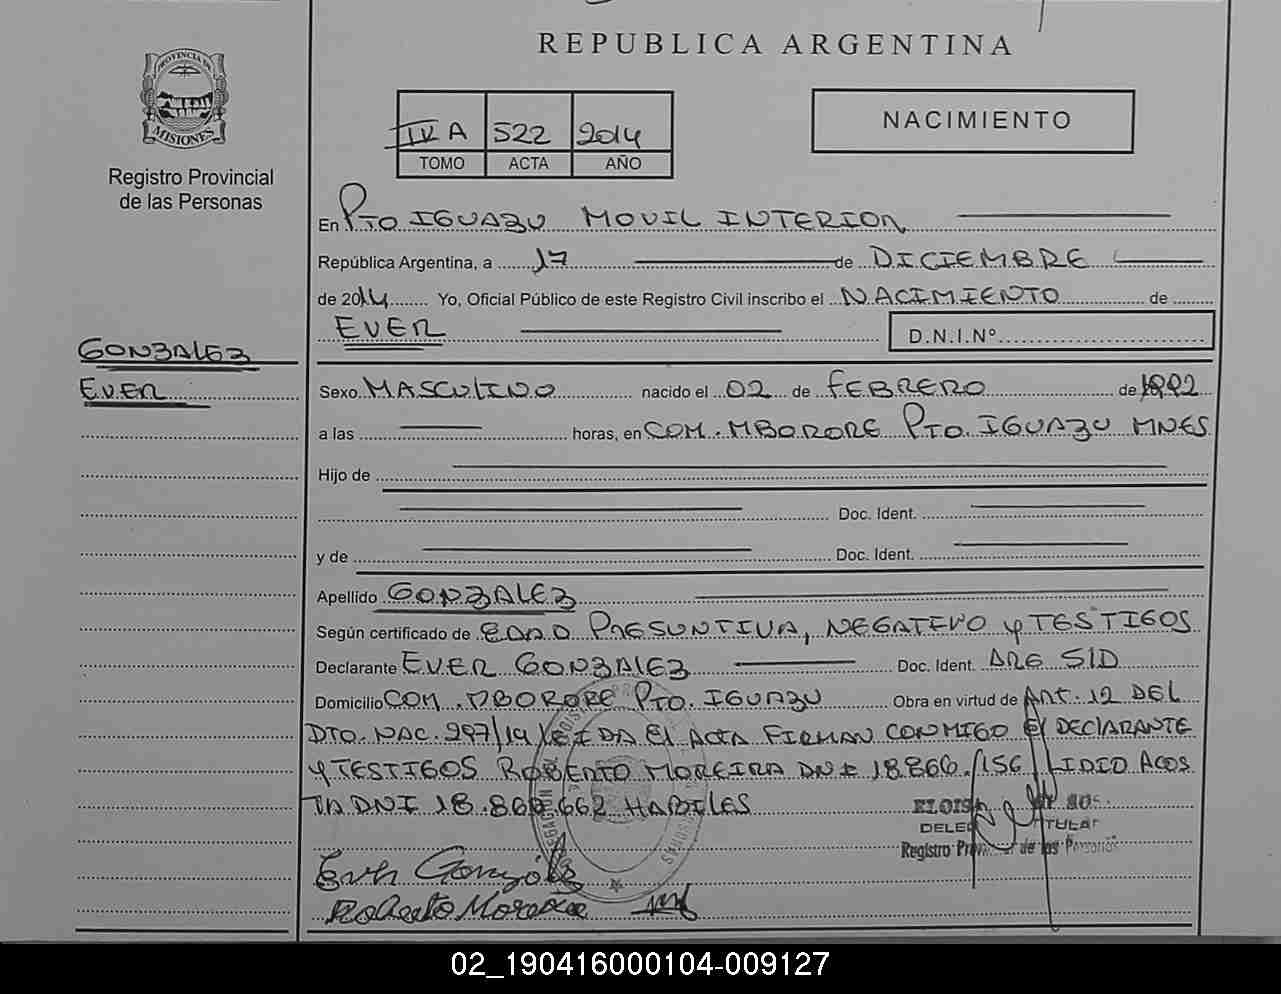 REPUBLICA ARGENTINA
PROVINCIA DE
MISIONES
Registro Provincial
de las Personas
IV A 522 2014
TOMO ACTA AÑO
NACIMIENTO
En PTO IGUAZU MOVIL INTERIOR
República Argentina, a 17 de DICIEMBRE
de 2014 Yo, Oficial Público de este Registro Civil inscribo el NACIMIENTO de
EVER D.N.I.Nº
GONZALEZ
EVER
Sexo MASCULINO nacido el 02 de FEBRERO de 1992
a las horas, en COM. MBORORE PTO. IGUAZU MNES
Hijo de
Doc. Ident.
y de Doc. Ident.
Apellido GONZALEZ
Según certificado de EDAD PRESUNTIVA, NEGATIVO Y TESTIGOS
Declarante EVER GONZALEZ Doc. Ident. ARG S/D
Domicilio COM. MBORORE PTO. IGUAZU Obra en virtud de ART. 12 DEL
DTO. NAC. 297/19 LEIDA EL ACTA FIRMAN CONMIGO El DECLARANTE
Y TESTIGOS ROBERTO MOREIRA DNI 18.866.156 LIDIO ACOS
TA DNI 18.860.662 HABILES
ELOISA
TITULAR
Registro de las Personas
Ever Gonzalez
Roberto Moreira
02_190416000104-009127